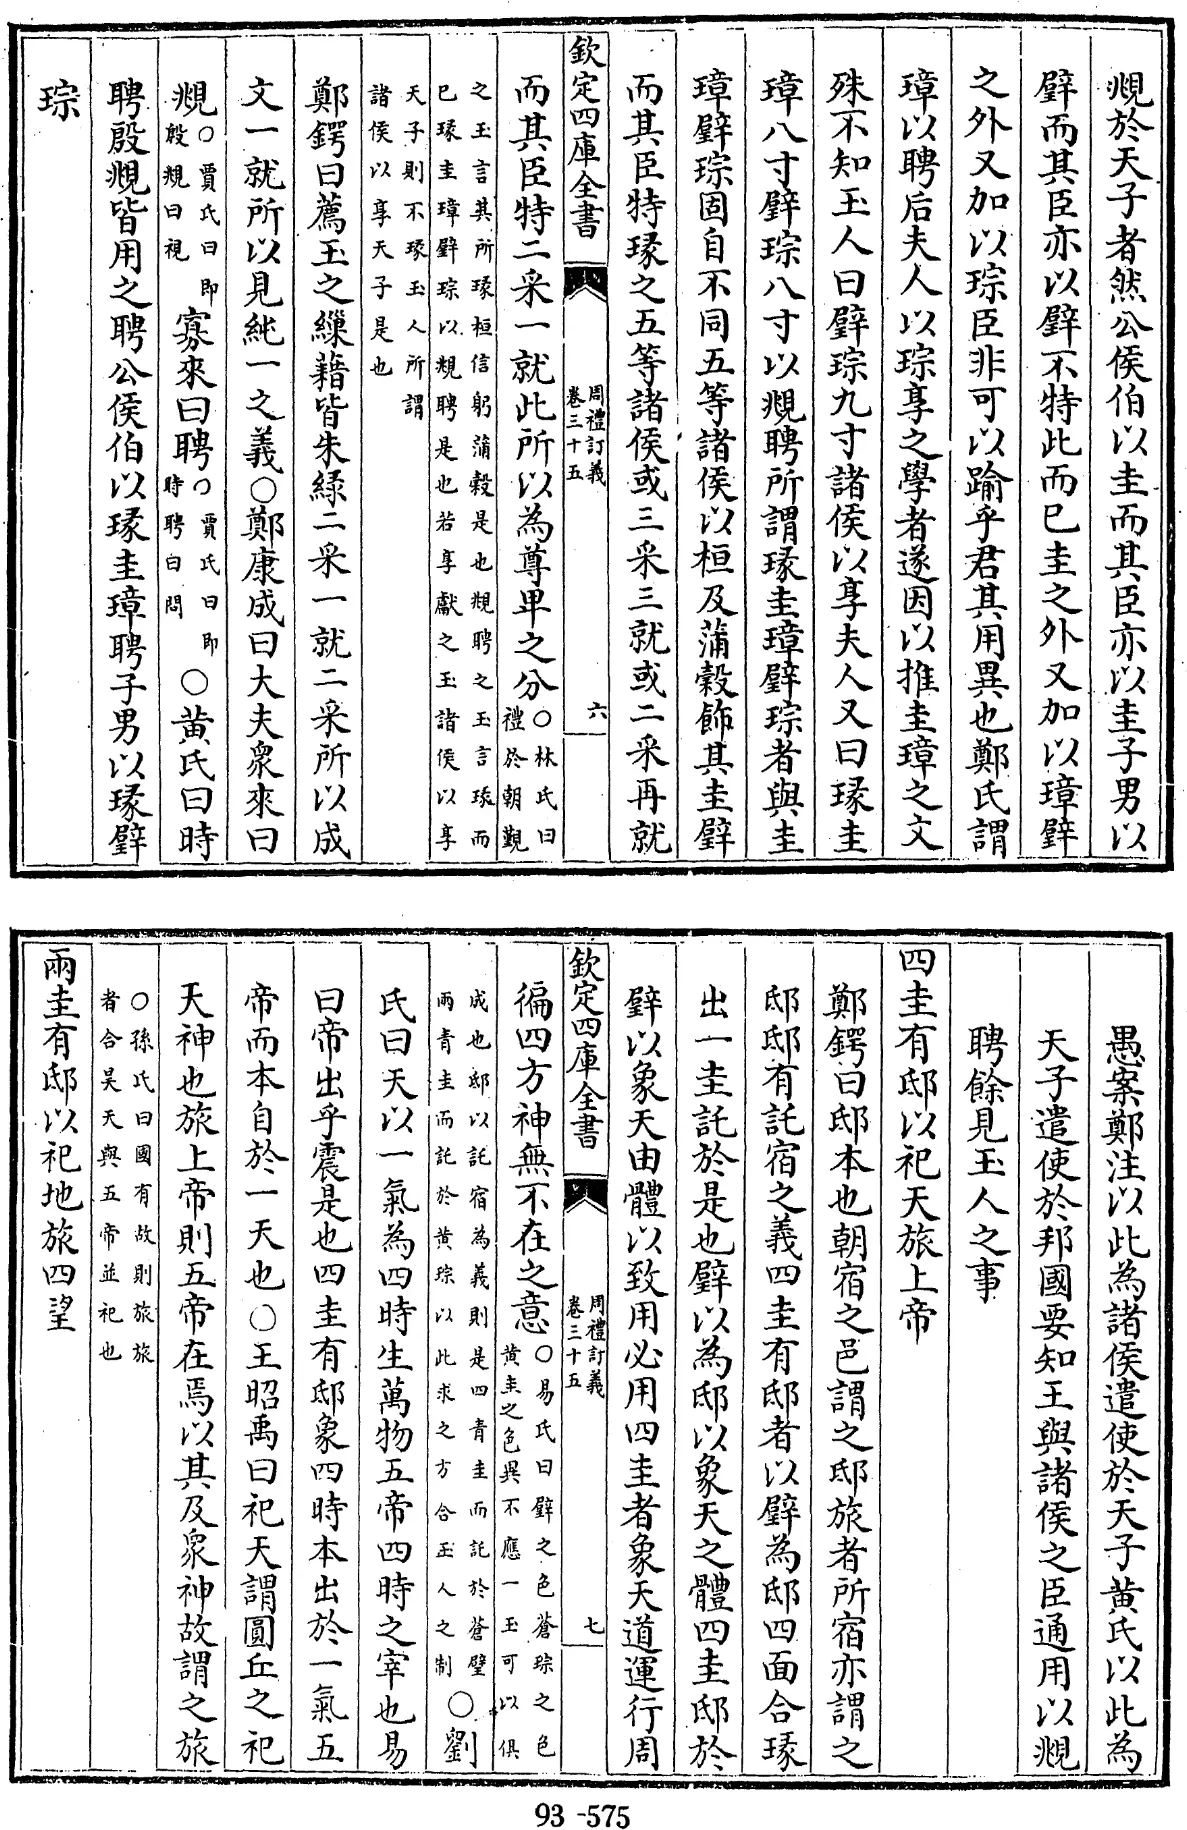 覜於天子者然公侯伯以圭而其臣亦以圭子男以
璧而其臣亦以璧不特此而已圭之外又加以璋璧
之外又加以琮臣非可以踰乎君其用異也鄭氏謂
璋以聘后夫人以琮享之學者遂因以推圭璋之文
殊不知玉人曰璧琮九寸諸侯以享夫人又曰瑑圭
璋八寸璧琮八寸以覜聘所謂瑑圭璋璧琮者與圭
璋璧琮固自不同五等諸侯以桓及蒲穀飾其圭璧
而其臣特瑑之五等諸侯或三采三就或二采再就
欽定四庫全書 周禮訂義 卷三十五 六
而其臣特二采一就此所以為尊卑之分○林氏曰禮於朝覲
之玉言其所瑑桓信躬蒲穀是也覜聘之玉言瑑而
已瑑圭璋璧琮以覜聘是也若享獻之玉諸侯以享
天子則不瑑玉人所謂
諸侯以享天子是也
鄭鍔曰薦玉之繅藉皆朱綠二采一就二采所以成
文一就所以見純一之義○鄭康成曰大夫衆來曰
覜○賈氏曰即殷覜曰視寡來曰聘○賈氏曰即時聘曰問○黄氏曰時
聘殷覜皆用之聘公侯伯以瑑圭璋聘子男以瑑璧
琮
愚案鄭注以此為諸侯遣使於天子黄氏以此為
天子遣使於邦國要知王與諸侯之臣通用以覜
聘餘見玉人之事
四圭有邸以祀天旅上帝
鄭鍔曰邸本也朝宿之邑謂之邸旅者所宿亦謂之
邸邸有託宿之義四圭有邸者以璧為邸四面合瑑
出一圭託於是也璧以為邸以象天之體四圭邸於
璧以象天由體以致用必用四圭者象天道運行周
欽定四庫全書 周禮訂義 卷三十五 七
徧四方神無不在之意○易氏曰璧之色蒼琮之色黄圭之色異不應一玉可以俱
成也邸以託宿為義則是四青圭而託於蒼璧
兩青圭而託於黄琮以此求之方合玉人之制○劉
氏曰天以一氣為四時生萬物五帝四時之宰也易
曰帝出乎震是也四圭有邸象四時本出於一氣五
帝而本自於一天也○王昭禹曰祀天謂圓丘之祀
天神也旅上帝則五帝在焉以其及衆神故謂之旅
○孫氏曰國有故則旅旅
者合昊天與五帝並祀也
兩圭有邸以祀地旅四望
93-575